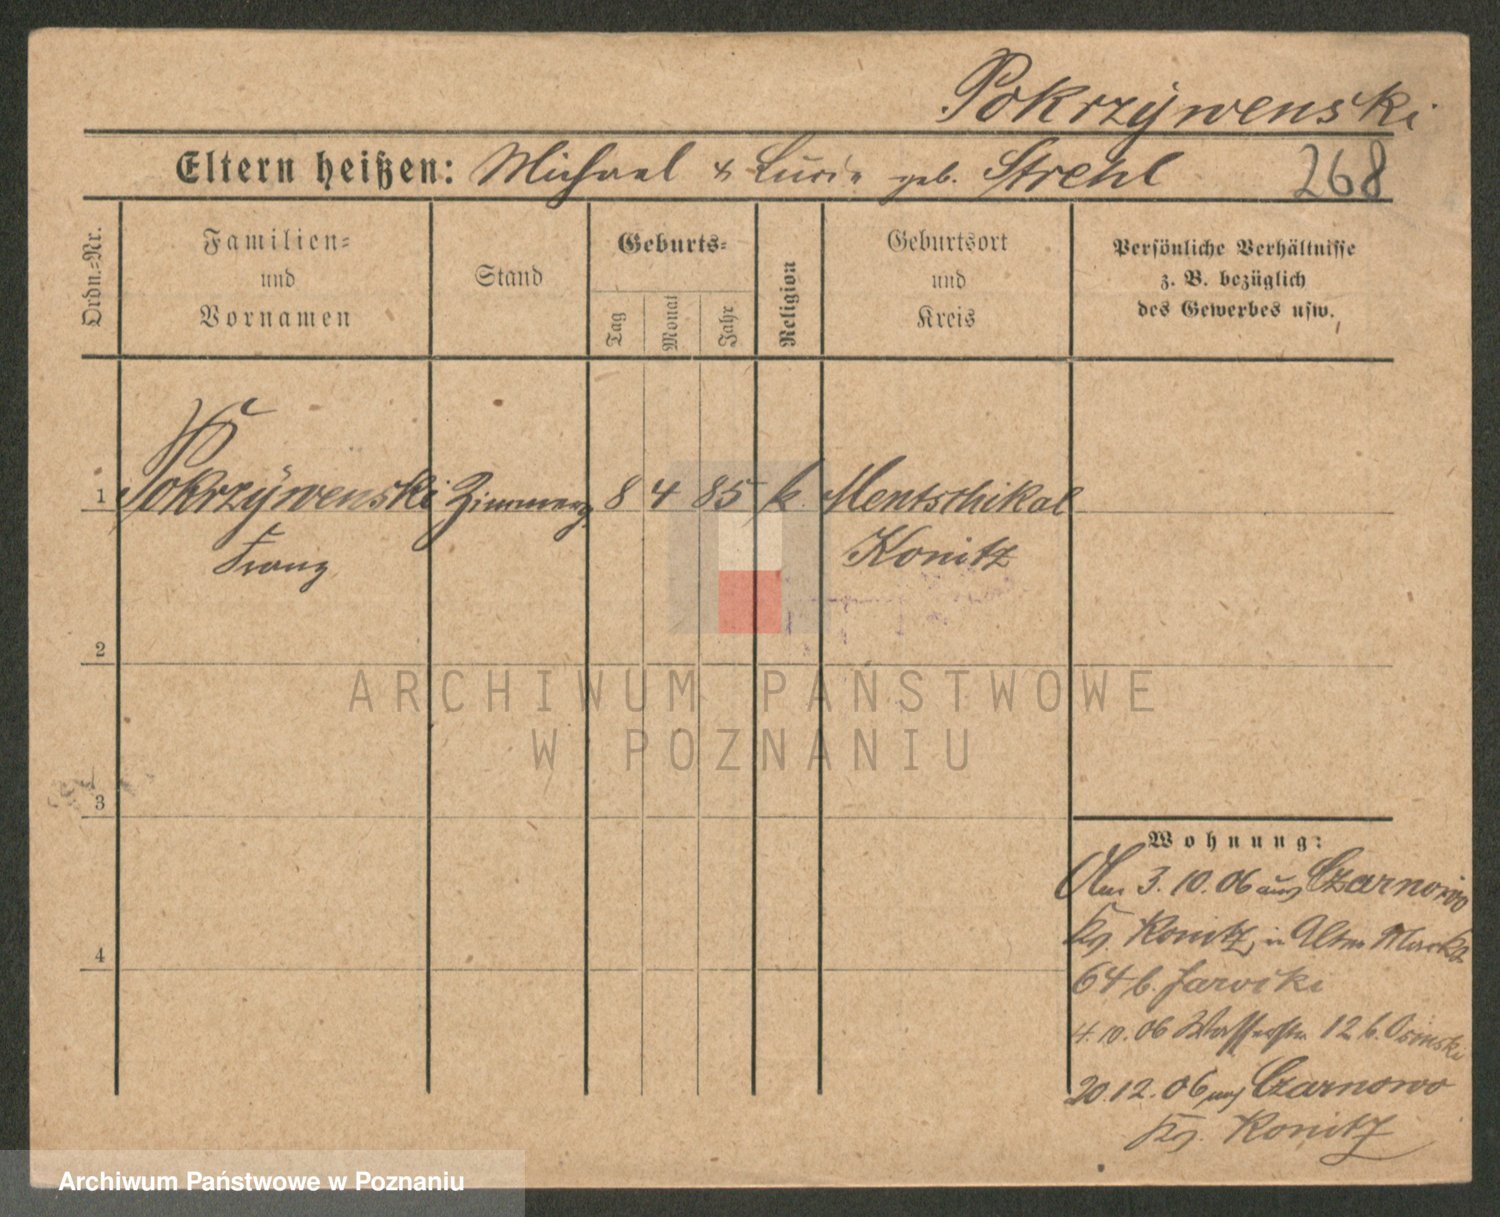 Pokrzywenski
Eltern heißen: Michael & geb. Strehl 268
Ordn.-Nr.
Familien-
und
Vornamen
Stand
Geburts-
Tag
Monat
Jahr
Religion
Geburtsort
und
Kreis
Persönliche Verhältnisse
z. B. bezüglich
des Gewerbes usw.
1 Pokrzywenski Zimmerg. 8 4 85 k. Mentschikal
Franz Konitz
2
ARCHIWUM PAŃSTWOWE
W POZNANIU
3
Wohnung:
3. 10. 06 aus Czarnowo
Konitz, in Alter Markt
64 b.
4
4. 10. 06 Wasserstr. 12 b. Osinski
20. 12. 06 Czarnowo
Konitz
Archiwum Państwowe w Poznaniu